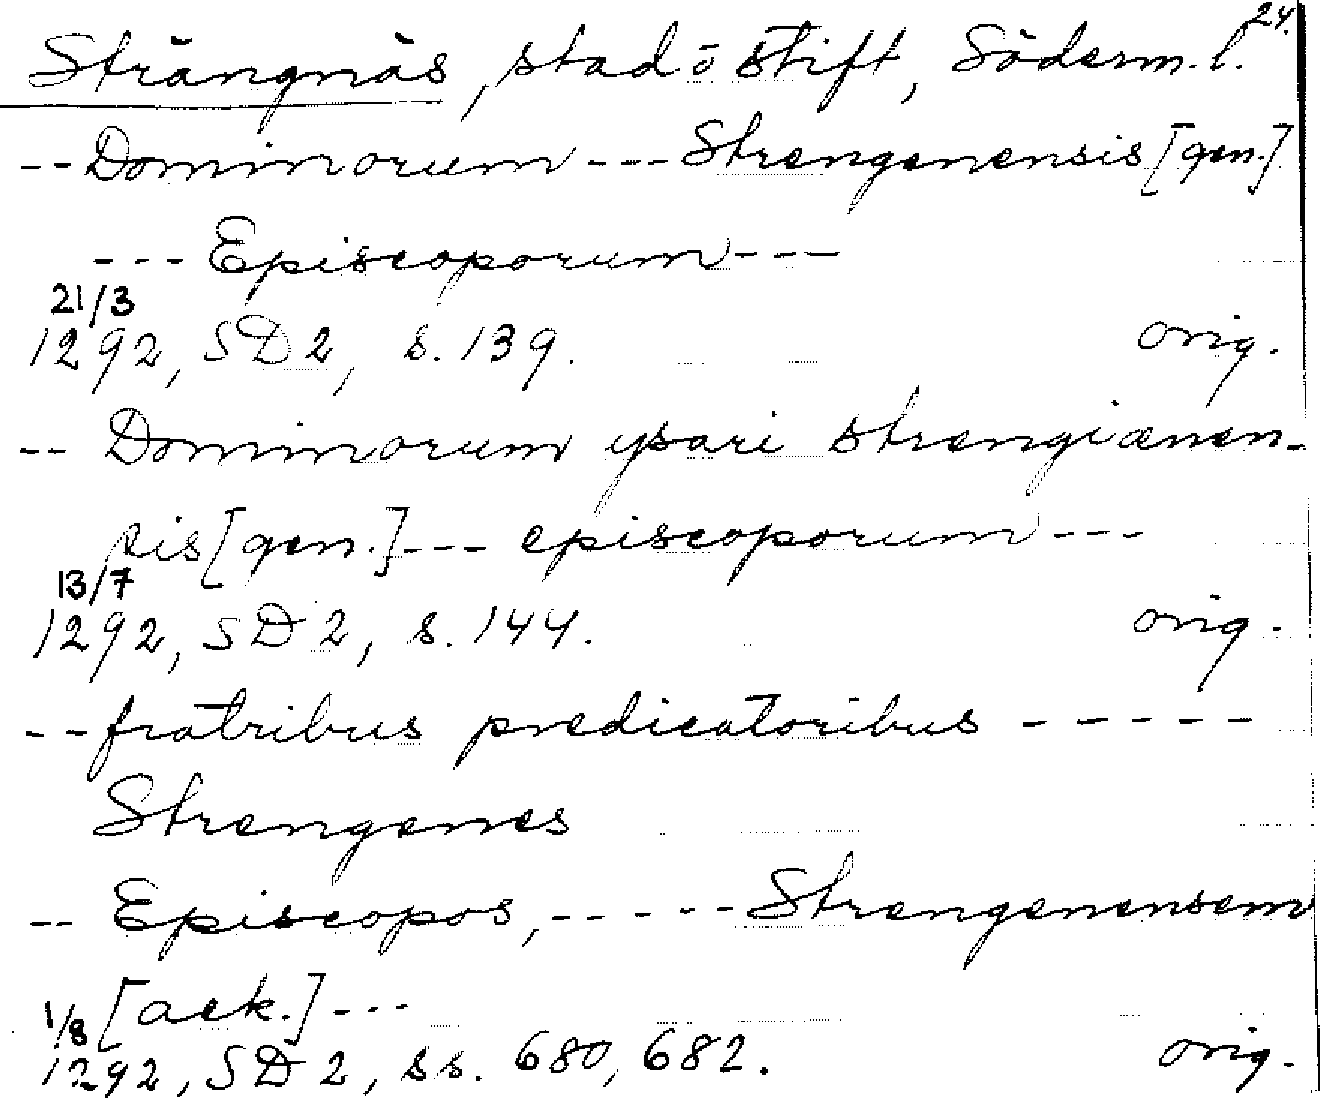 24.
Strängnäs, stad o stift, Söderm. l.
-- Dominorum --- Strengenensis [gen.]
--- Episcoporum ---
21/3
1292, SD 2, s. 139. orig.
-- Dominorum ysari strengiænen-
sis [gen.] --- episcoporum ---
13/7
1292, SD 2, s. 144. orig.
-- fratribus predicatoribus -----
Strengenes
-- Episcopos, ----- Strengenensem
[ack.] ---
1/8
1292, SD 2, ss. 680, 682. orig.